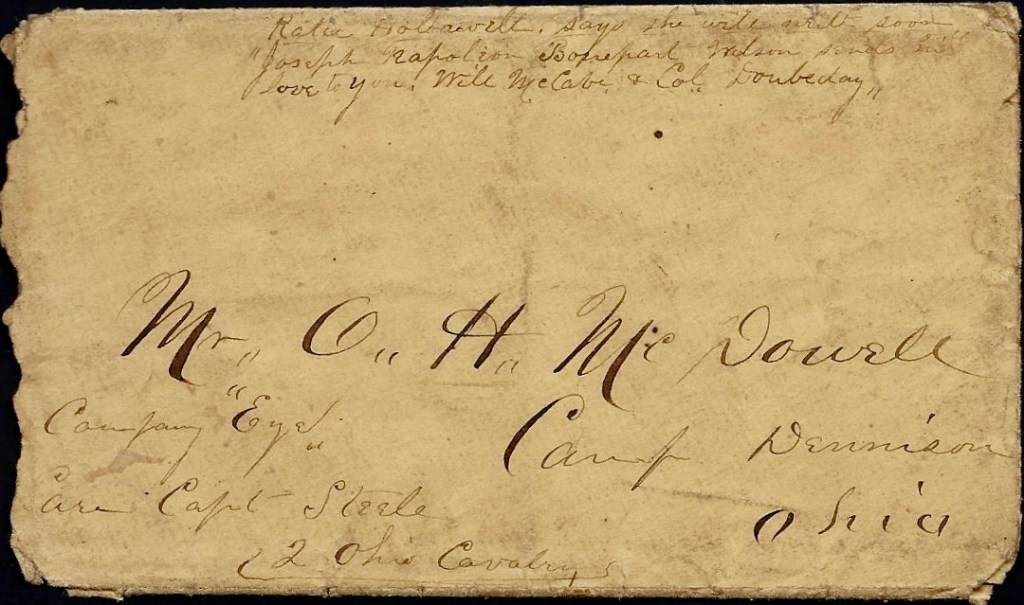 Katie Holdawelt. says she will writ soon"
"Joseph Napoleon Bonepart Wilson sends his
love to you. Will McCabe & Col,, Doubeday,,
Mr,, O,, H,, Mc Dowell
Company "Eye",,
Camp Dennison
Care Capt Steele
Ohio
2 Ohio Cavalry